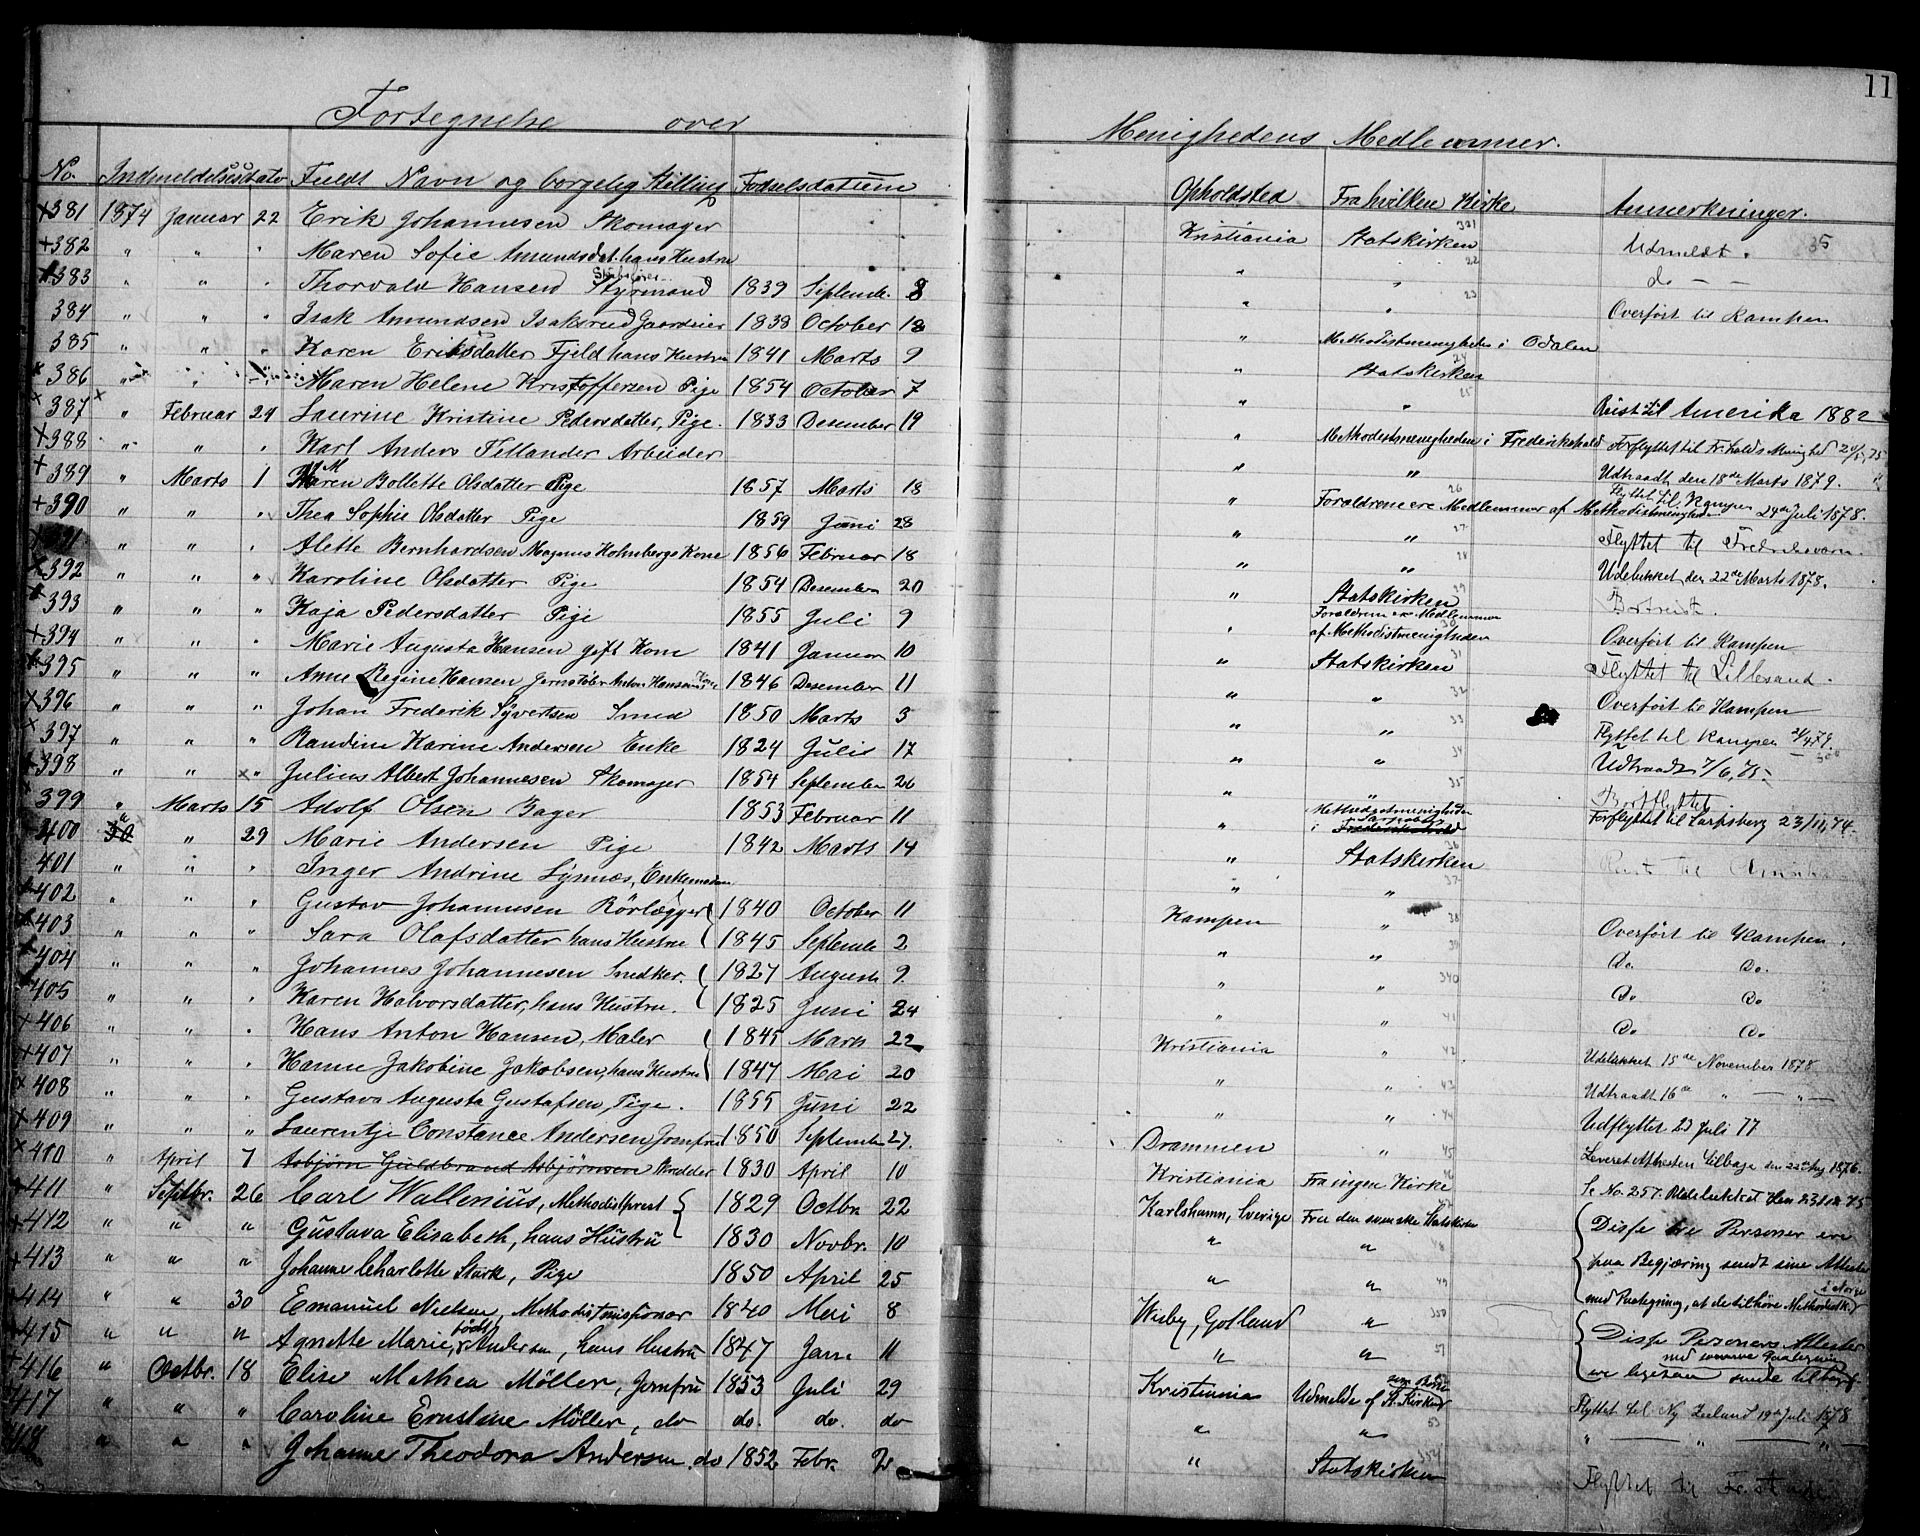 11
Fortegnelse over Menighedens Medlemmer.
No. Indmeldelsesdato Fuldt Navn og borgelig Stilling Fødselsdatum Opholdsted Fra hvilken Kirke Anmerkninger.
+381 1874 Januar 22 Erik Johannesen Skomager Kristiania Statskirken 321 Udmeldt. 35
+382 " " " Maren Sofie Amundsdat. hans Hustru " " 22 do — —
383 " " " Thorvald Hansen Styrmand 1839 Septembe. 8 " " 23 Overført til Kampen
384 " " " Isak Amundsen Isaksrud Gaardeier 1838 October 18 " Methodistmenigheden i Odalen
385 " " " Karen Eriksdatter Fjeld hans Hustru 1841 Marts 9 " Statskirken 24
386 " " " Maren Helene Kristoffersen Pige 1854 October 7 " " 25 Reist til Amerika 1882
387 " Februar 24 Laurine Kristine Pedersdatter, Pige. 1833 Desember 19 " Methodistmenigheden i Frederikshald Forflyttet til Fr.halds Menighed
+388 " " " Karl Anders Fellander Arbeider " " Udtraadt den 18de Marts 1879.
+389 " Marts 1 Maren Bollette Olsdatter Pige 1857 Marts 18 " Forældrene ere Medlemmer af Methodistmenigheden 26 Flyttet til Kampen 24de Juli 1878.
+390 " " " Thea Sophie Olsdatter Pige 1859 Juni 28 " " 27 Flyttet til Fredriksværn.
391 " " " Alette Bernhardsen Magnus Holmbergs Kone 1856 Februar 18 " " 28 Udelukket den 22de Marts 1878.
392 " " " Karoline Olsdatter Pige 1854 Desember 20 " Statskirken 29 Bortreist.
393 " " " Kaja Pedersdatter Pige 1855 Juli 9 " Forældrene ere Medlemmer af Methodistmenigheden 30 Overført til Kampen
+394 " " " Marie Augusta Hansen gift Kone 1841 Januar 10 " Statskirken 31 Flyttet til Lillesand.
395 " " " Anne Regine Hansen Jernstøber Anton Hansens Kone 1846 Desember 11 " " 32 Overført til Kampen
396 " " " Johan Frederik Syvertsen Smed 1850 Marts 3 " " 33 Flyttet til Kampen
397 " " " Randine Karine Andersen Enke 1824 Juli 17 " " 34 Udtraadt 7/6, 75
398 " " " Julius Albert Johannesen Skomager 1854 September 26 " " 35 Bortflyttet
399 " Marts 15 Adolf Olsen Bager 1853 Februar 11 " Methodistmenigheden i Sarpsborg Frederikshald Forflyttet til Sarpsborg 23/11, 74.
400 " " 29 Marie Andersen Pige 1842 Marts 14 " Statskirken 36 Reist til
401 " " " Inger Andrine Lynnæs, Enkemadam " " 37
402 " " " Gustav Johannesen Rörlægger 1840 October 11 Kampen " 38 Overført til Kampen.
403 " " " Sara Olafsdatter hans Hustru 1845 Septembe 2 " " 39 Do. Do.
404 " " " Johannes Johannesen Snedker. 1827 August 9. " " 340 Do Do
405 " " " Karen Halvorsdatter, hans Hustru. 1825 Juni 24 " " 41 Do Do
+406 " " " Hans Anton Hansen, Maler 1845 Marts 22 Kristiania " 42 Udelukket 15de November 1878
+407 " " " Hanne Jakobine Jakobsen, hans Hustru 1847 Mai 20 " " 43 Udtraadt 16de " — " —
408 " " " Gustava Augusta Gustafsen, Pige. 1855 Juni 22 " " 44 Udflyttet Juli 77
409 " " " Laurentje Constance Andersen Jomfru 1850 September 27. Drammen " 45 Leveret Attesten tilbage den 22de Aug 1876.
410 " April 7 Asbjørn Guldbrand Asbjørnsen Skrædder 1830 April 10 Kristiania Fra ingen Kirke 46 Se No. 257. Udelukket den 23
+411 " Septbr. 26 Carl Wallenius, Methodistprest 1829 Octbr 22 Karlshamn, Sverige Fra den svenske Statskirke Disse tre Personer ere
+412 " " " Gustava Elisabeth, hans Hustru 1830 Novbr. 10 " " 48 paa Begjæring sendt sine Attester
+413 " " " Johanne Charlotte Stark, Pige 1850 April 25 " " 49 med Paategning, at de tilhøre Methodistk. i Norge
+414 " " 30 Emanuel Nielsen, Methodistmissionær 1840 Mai 8 Wisby, Gotland " 350 Disse Personers Attester
+415 " " " Agnette Marie, født Andersen, hans Hustru 1847 Jan. 11 " " 51 med samme Paategning ere ligesaa sendte
+416 " Octbr. 18 Elise Mathea Möller, Jomfru 1853 Juli 29 Kristiania Udmeldt af St. Kirken Flyttet til Ny Zeeland 19de Juli 1878
+417 " " " Caroline Ernstine Möller, do do. do. do " " 53 " — " — " —
418 " " " Johanne Theodora Andersen, do 1852 Febr. 2 " Statskirken 354 Flyttet til